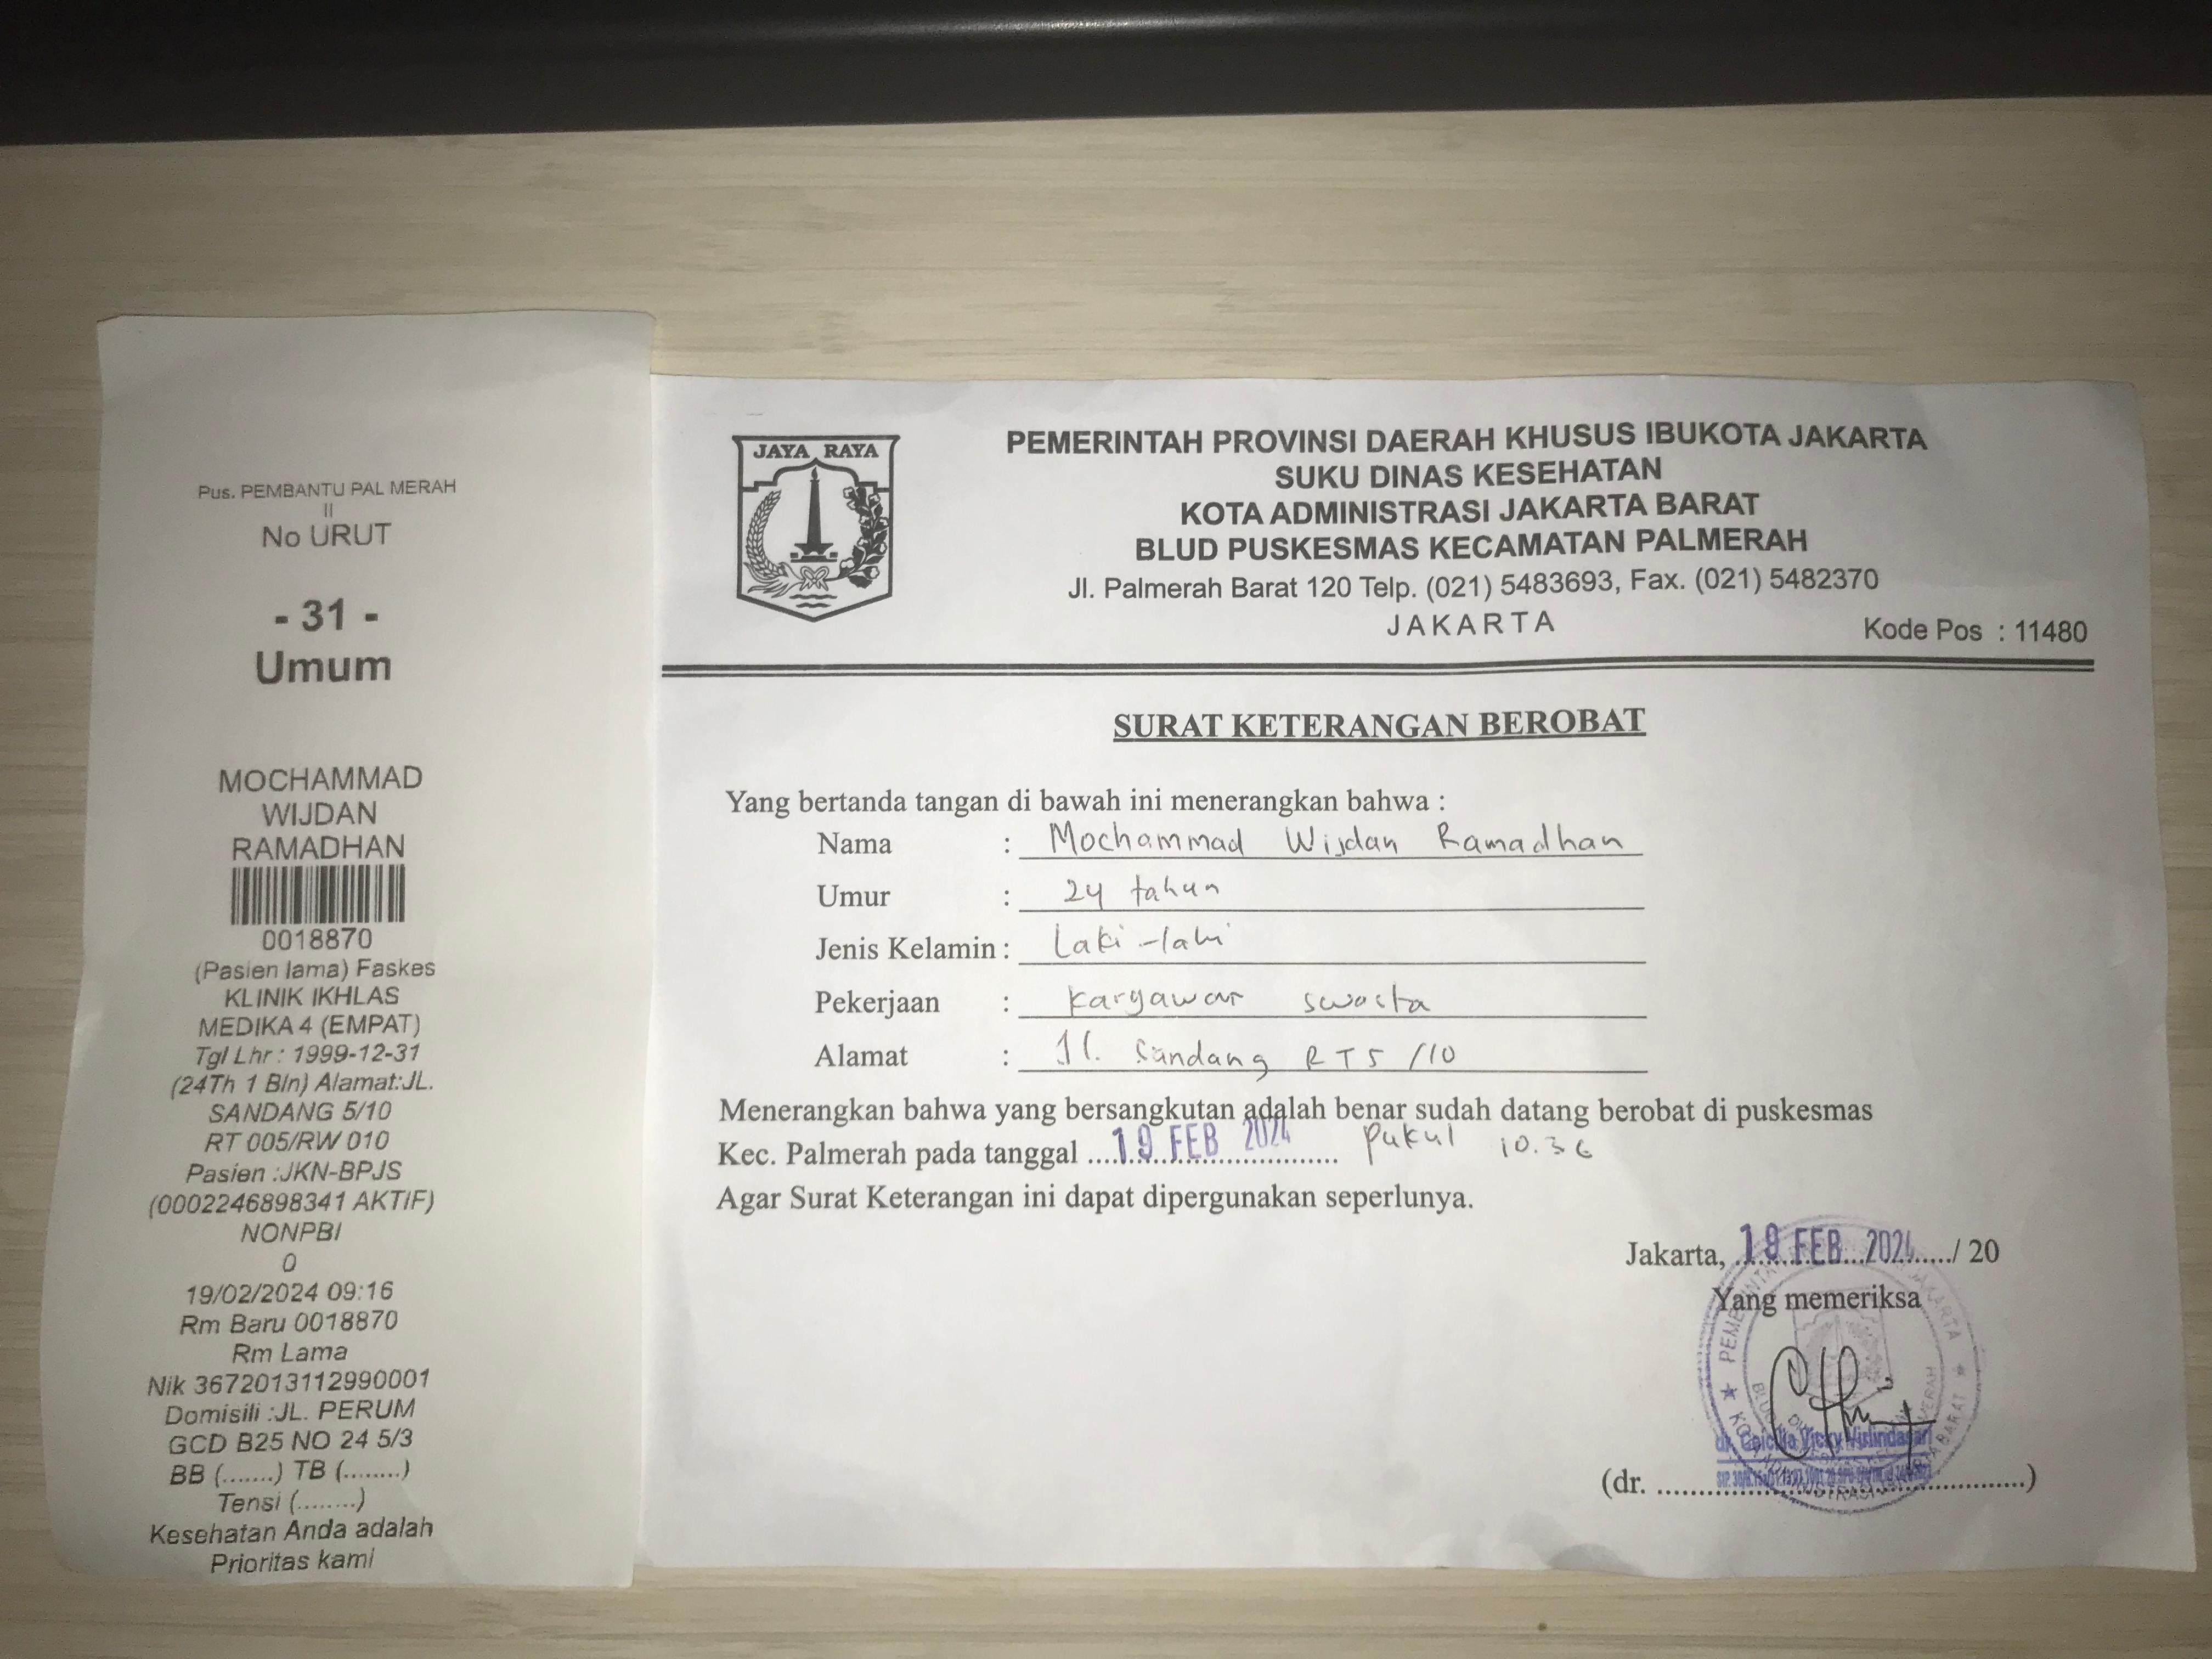 Pus. PEMBANTU PAL MERAH
II
No URUT
- 31 -
Umum
MOCHAMMAD
WIJDAN
RAMADHAN
0018870
(Pasien lama) Faskes
KLINIK IKHLAS
MEDIKA 4 (EMPAT)
Tgl Lhr : 1999-12-31
(24Th 1 Bln) Alamat:JL.
SANDANG 5/10
RT 005/RW 010
Pasien :JKN-BPJS
(0002246898341 AKTIF)
NONPBI
0
19/02/2024 09:16
Rm Baru 0018870
Rm Lama
Nik 3672013112990001
Domisili :JL. PERUM
GCD B25 NO 24 5/3
BB (.......) TB (........)
Tensi (........)
Kesehatan Anda adalah
Prioritas kami
JAYA RAYA
PEMERINTAH PROVINSI DAERAH KHUSUS IBUKOTA JAKARTA
SUKU DINAS KESEHATAN
KOTA ADMINISTRASI JAKARTA BARAT
BLUD PUSKESMAS KECAMATAN PALMERAH
Jl. Palmerah Barat 120 Telp. (021) 5483693, Fax. (021) 5482370
JAKARTA
Kode Pos : 11480
SURAT KETERANGAN BEROBAT
Yang bertanda tangan di bawah ini menerangkan bahwa :
Nama : Mochammad Wijdan Ramadhan
Umur : 24 tahun
Jenis Kelamin : Laki-laki
Pekerjaan : Karyawan swasta
Alamat : Jl. Sandang RT 5 /10
Menerangkan bahwa yang bersangkutan adalah benar sudah datang berobat di puskesmas
Kec. Palmerah pada tanggal 19 FEB 2024 pukul 10.36
Agar Surat Keterangan ini dapat dipergunakan seperlunya.
Jakarta, 19 FEB 2024 / 20
Yang memeriksa
(dr. ..........)